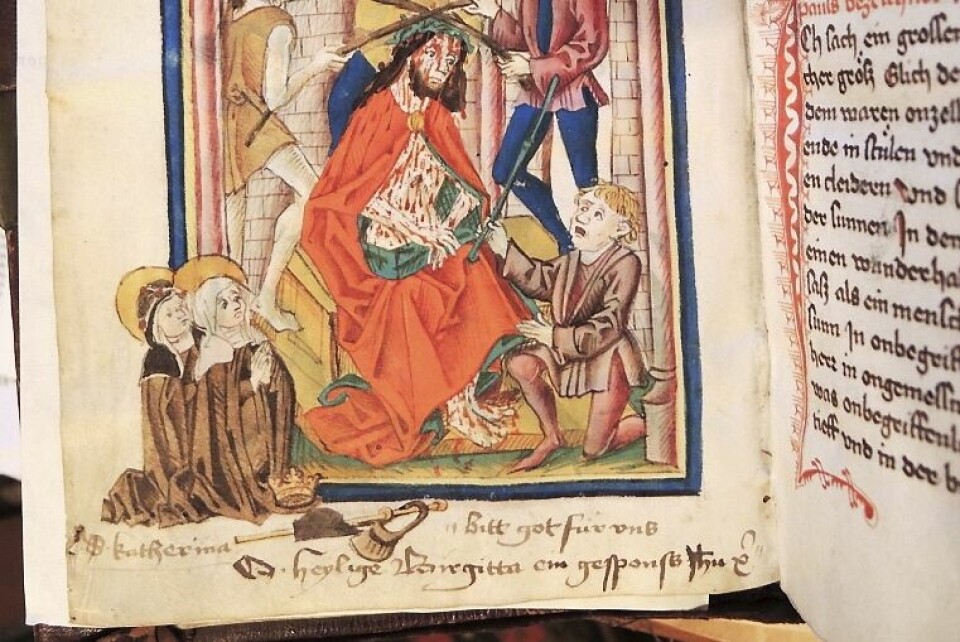 S. katherina
bitt got für vns
O. heylige Burgitta ein gesponsß jhu x̄
pauls bezeichnet
Ch sach ein grossen
cher größ Glich de
dem waren onzell
ende in stůlen vnd
en cleidern vnd
der sunnen In den
einen wunderba
saß als ein mensch
sunn In onbegriff
herr in ongemessn
was onbegriffenli
tieff vnd in der b